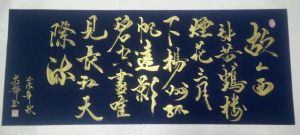 故人西
辞黄鶴樓
煙花三月
下揚州孤
帆遠影
碧空盡唯
見長江天
際流